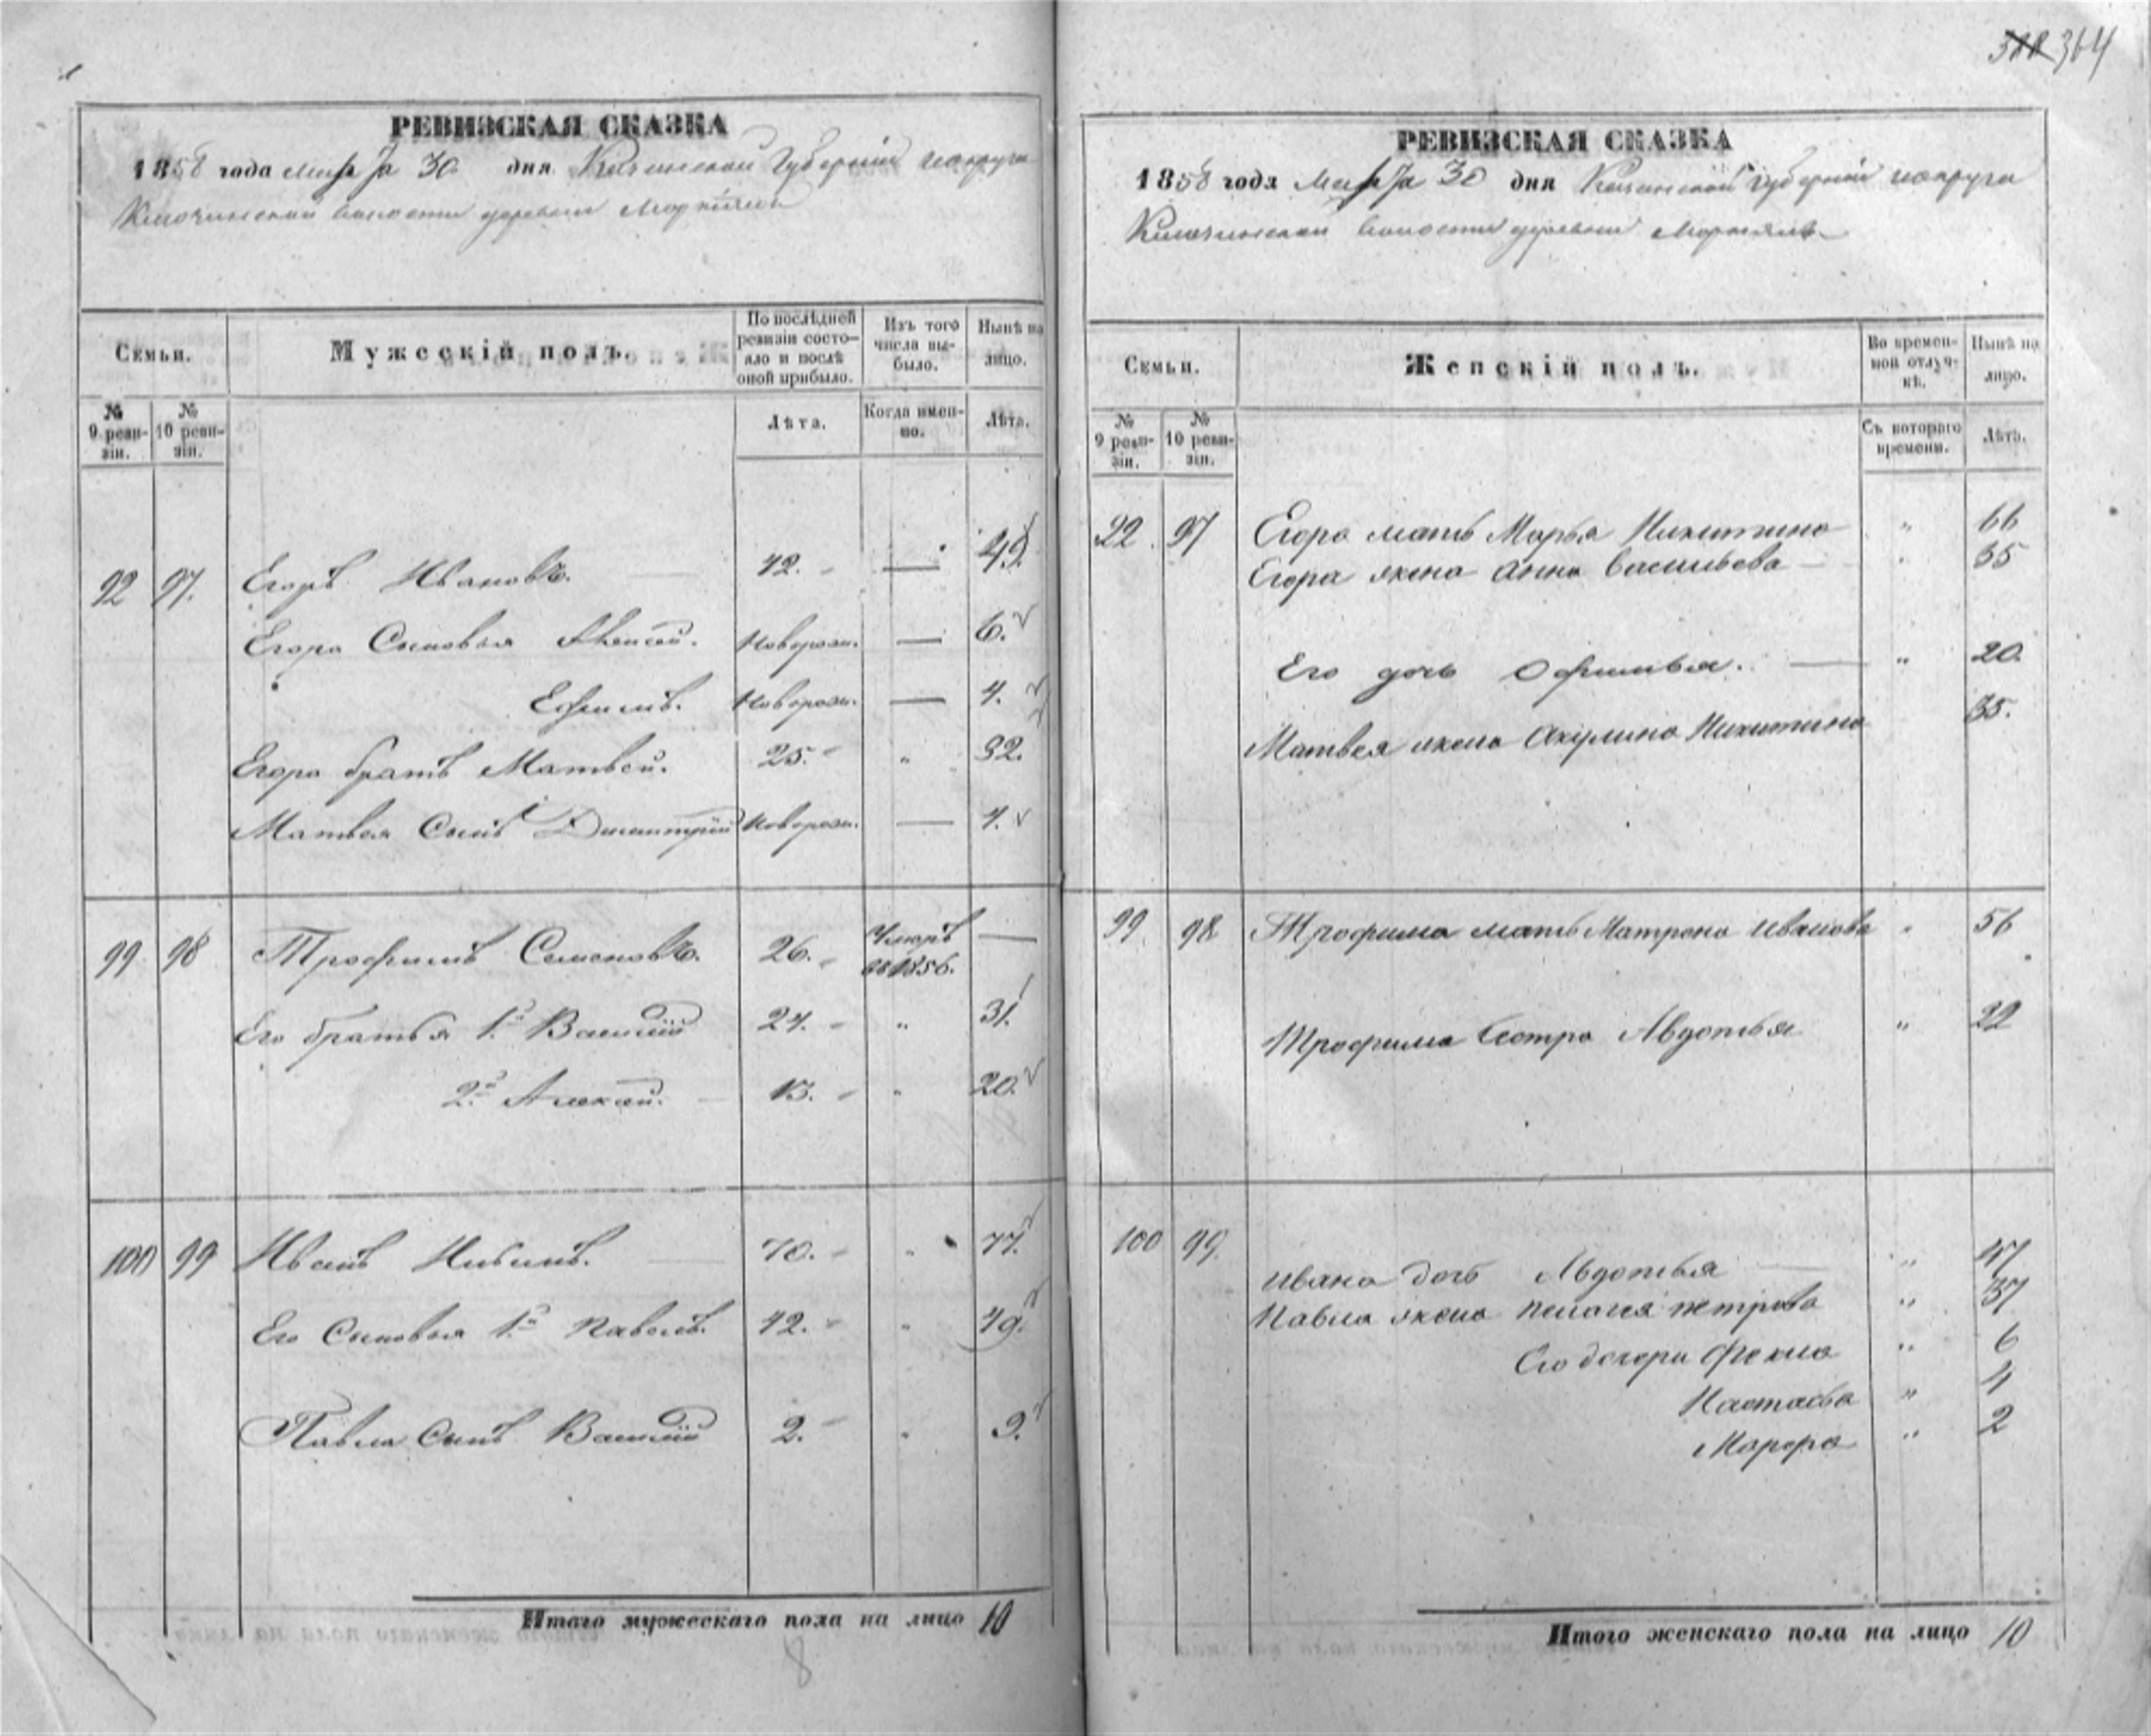 388 364
РЕВИЗСКАЯ СКАЗКА
1858 года Марта 30 дня Казанской Губернiи и округа
Ключинской волости деревни
Семьи.
Мужескiй полъ.
По послѣдней ревизiи состо-
яло и послѣ
оной прибыло.
Изъ того
числа вы-
было.
Нынѣ на
лицо.
№
9 реви-
зiи.
№
10 реви-
зiи.
Лѣта.
Когда имен-
но.
Лѣта.
92 97. Егоръ Ивановъ. 42. — 49.
Егора Сыновья Алексей. Новорож. — 6.
Ефимъ. Новорож. — 4.
Егора братъ Матвей. 25. " 32.
Матвея Сынъ Димитрiй Новорож. — 4.
99 98 Трофимъ Семеновъ. 26. Умеръ —
въ 1856.
Его братья 1й Василiй 24. " 31.
2й Алексей. 13. " 20.
100 99 Иванъ 70. " 77.
Его Сыновья 1й Павелъ. 42. " 49.
Павла Сынъ Василiй 2. " 9.
Итого мужескаго пола на лицо 10
8
РЕВИЗСКАЯ СКАЗКА
1858 года Марта 30 дня Казанской губернiи и округа
Ключинской волости деревни
Семьи.
Женскiй полъ.
Во времен-
ной отлуч-
кѣ.
Нынѣ на
лицо.
№
9 реви-
зiи.
№
10 реви-
зiи.
Съ котораго
времени.
Лѣта.
92 97 Егора мать Марья Никитина " 66
Егора жена Анна Васильева " 35
Его дочь Офимья. — " 20.
Матвея жена Акулина Никитина 35.
99. 98 Трофима мать Матрена Иванова " 56
Трофима Сестра Авдотья " 22
100 99. Ивана дочь Авдотья " 47
Павла жена Пелагея Петрова " 37
Его дочери Фекла " 6
Настасья " 4
Марфа " 2
Итого женскаго пола на лицо 10